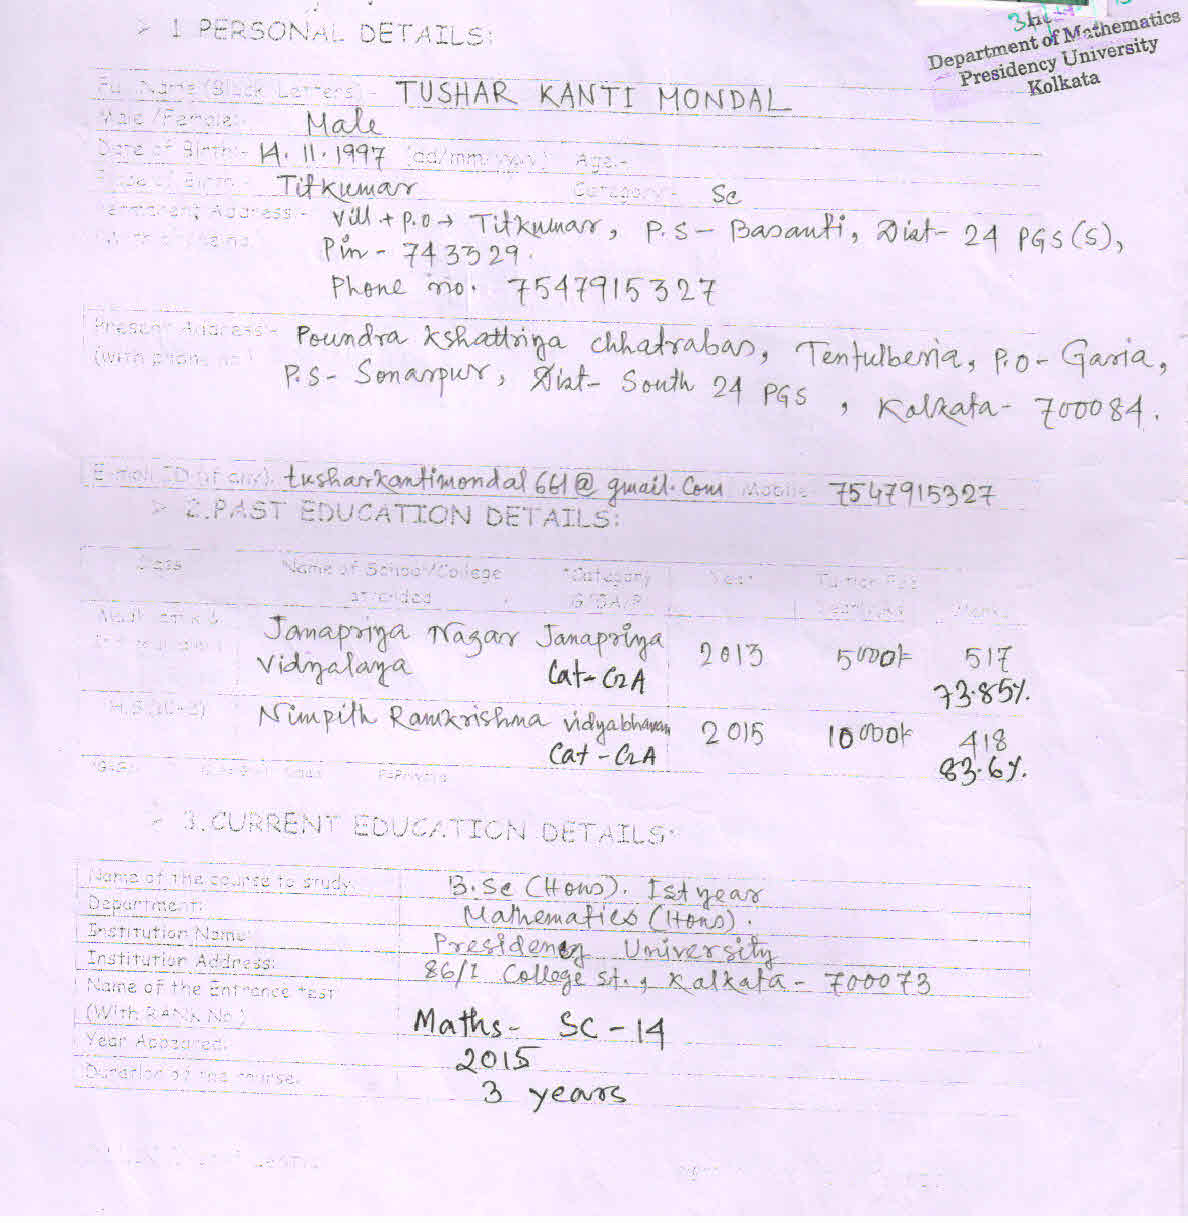 Department of Mathematics
Presidency University
Kolkata
> 1 PERSONAL DETAILS:
Full Name (Block Letters) - TUSHAR KANTI MONDAL
Male /Female:- Male
Date of Birth:- 14.11.1997 (dd/mm/yyyy) Age:-
Place of Birth:- Titkumar Category:- SC
Permanent Address - Vill + P.O → Titkumar, P.S - Basanti, Dist- 24 PGS (S),
(With phone no.) Pin - 743329.
Phone no. 7547915327
Present Address:- Poundra Kshattriya chhatrabas, Tentulberia, P.O - Garia,
(with phone no.) P.S - Sonarpur, Dist- South 24 PGS, Kolkata - 700084.
E-mail ID (if any). tusharkantimondal661@gmail.com Mobile 7547915327
> 2.PAST EDUCATION DETAILS:
Class Name of School/College *Category Year Tuition Fee
attended G/GA/P Marks
Janapriya Nagar Janapriya 2013 5000/- 517
Vidyalaya Cat-G2A 73.85%.
Nimpith Ramkrishna vidyabhavan 2015 10000/- 418
Cat-G2A 83.6%.
P=Private
> 3.CURRENT EDUCATION DETAILS:
Name of the course to study: B.Sc (Hons). Ist year
Department: Mathematics (Hons).
Institution Name: Presidency University
Institution Address: 86/1 College st., Kolkata - 700073
Name of the Entrance test
(With RANK No.) Maths- SC-14
Year Appeared: 2015
Duration of the course: 3 years